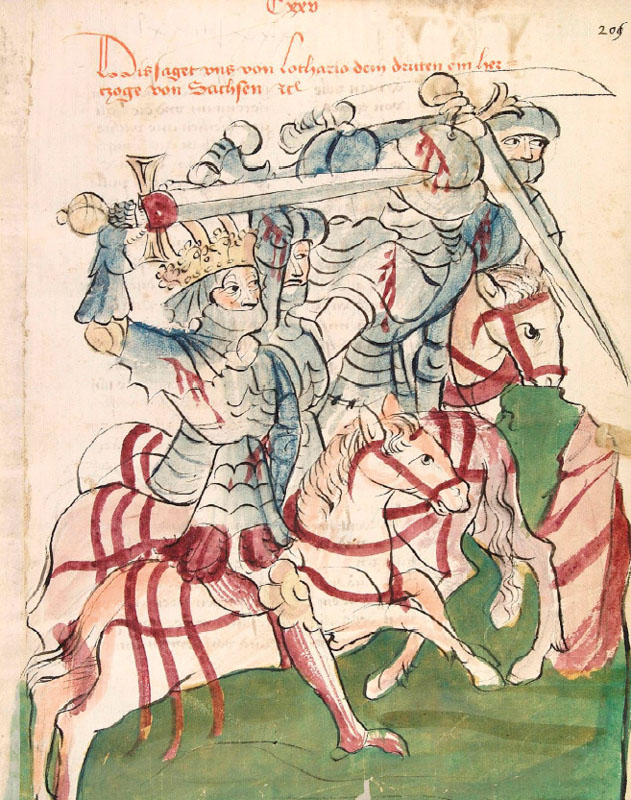 Cxxv
205
Dis saget vns von lothario dem dritten ein her-
tzoge von Sachsen ꝛcꝭ